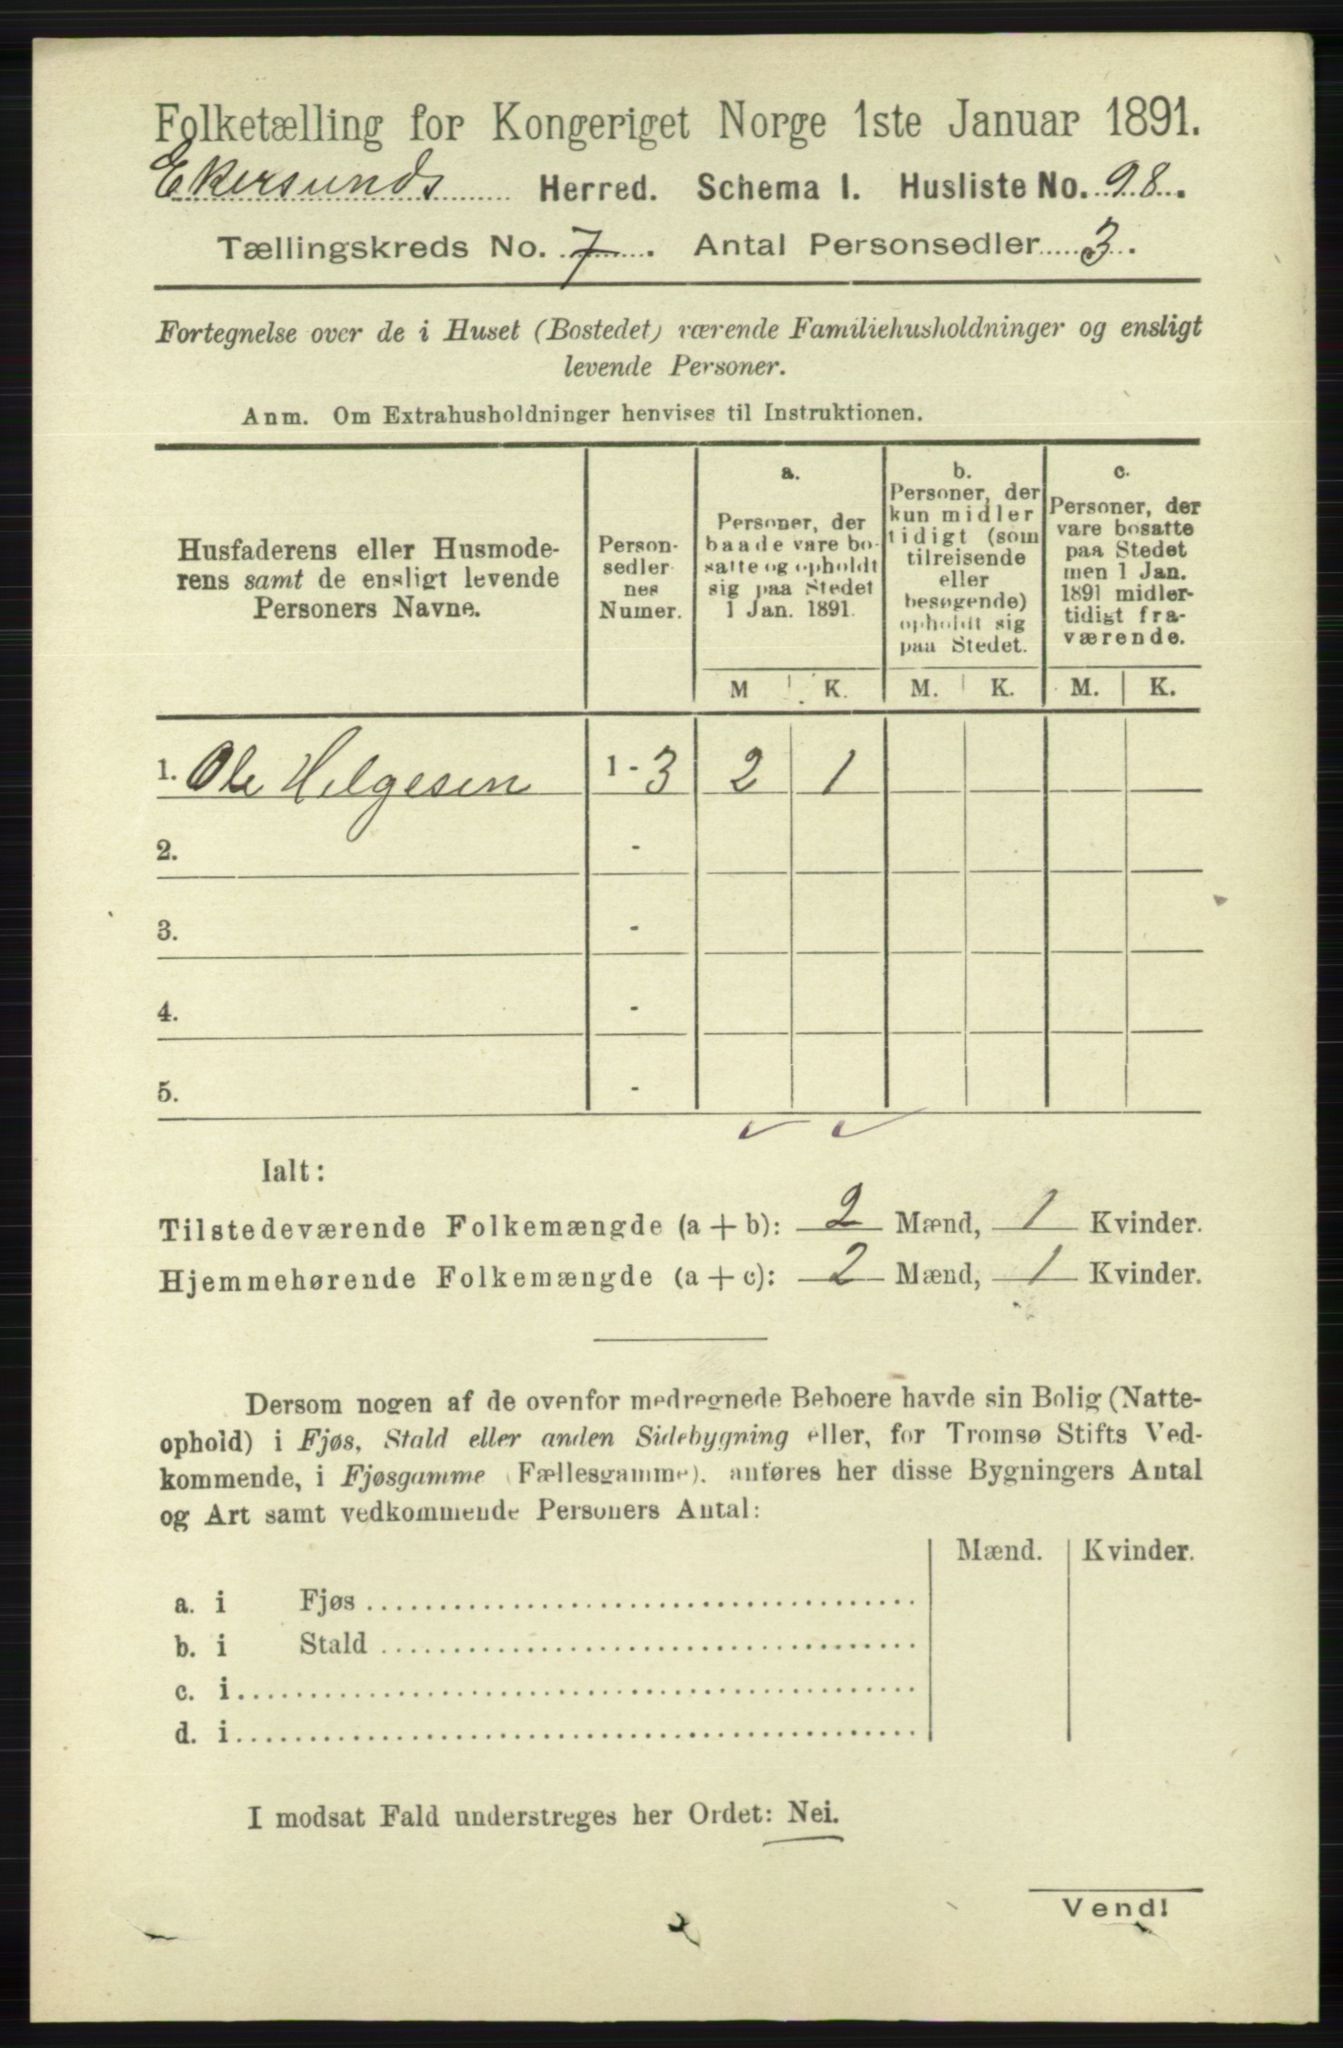 Folketælling for Kongeriget Norge 1ste Januar 1891.
Ekersunds Herred. Schema 1. Husliste No. 98.
Tællingskreds No. 7. Antal Personsedler 3.
Fortegnelse over de i Huset (Bostedet) værende Familiehusholdninger og ensligt
levende Personer.
Anm. Om Extrahusholdninger henvises til Instruktionen.
Husfaderens eller Husmode-
rens samt de ensligt levende
Personers Navne.
Person-
sedler-
nes
Numer.
a.
Personer, der
baade vare bo-
satte og opholdt
sig paa Stedet
1 Jan. 1891.
M K.
b.
Personer, der
kun midler
tidigt (som
tilreisende
eller
besøgende)
opholdt sig
paa Stedet.
M. K.
c.
Personer, der
vare bosatte
paa Stedet
men 1 Jan.
1891 midler-
tidigt fra-
værende.
M. K.
1. Ole Helgesen 1 - 3 2 1
2. -
3. -
4. -
5. -
Ialt:
Tilstedeværende Folkemængde (a + b): 2 Mænd, 1 Kvinder.
Hjemmehørende Folkemængde (a + c): 2 Mænd, 1 Kvinder.
Dersom nogen af de ovenfor medregnede Beboere havde sin Bolig (Natte-
ophold) i Fjøs, Stald eller anden Sidebygning eller, for Tromsø Stifts Ved-
kommende, i Fjøsgamme (Fællesgamme). anføres her disse Bygningers Antal
og Art samt vedkommende Personers Antal:
Mænd. Kvinder.
a. i Fjøs
b. i Stald
c. i
d. i
I modsat Fald understreges her Ordet: Nei.
Vend!